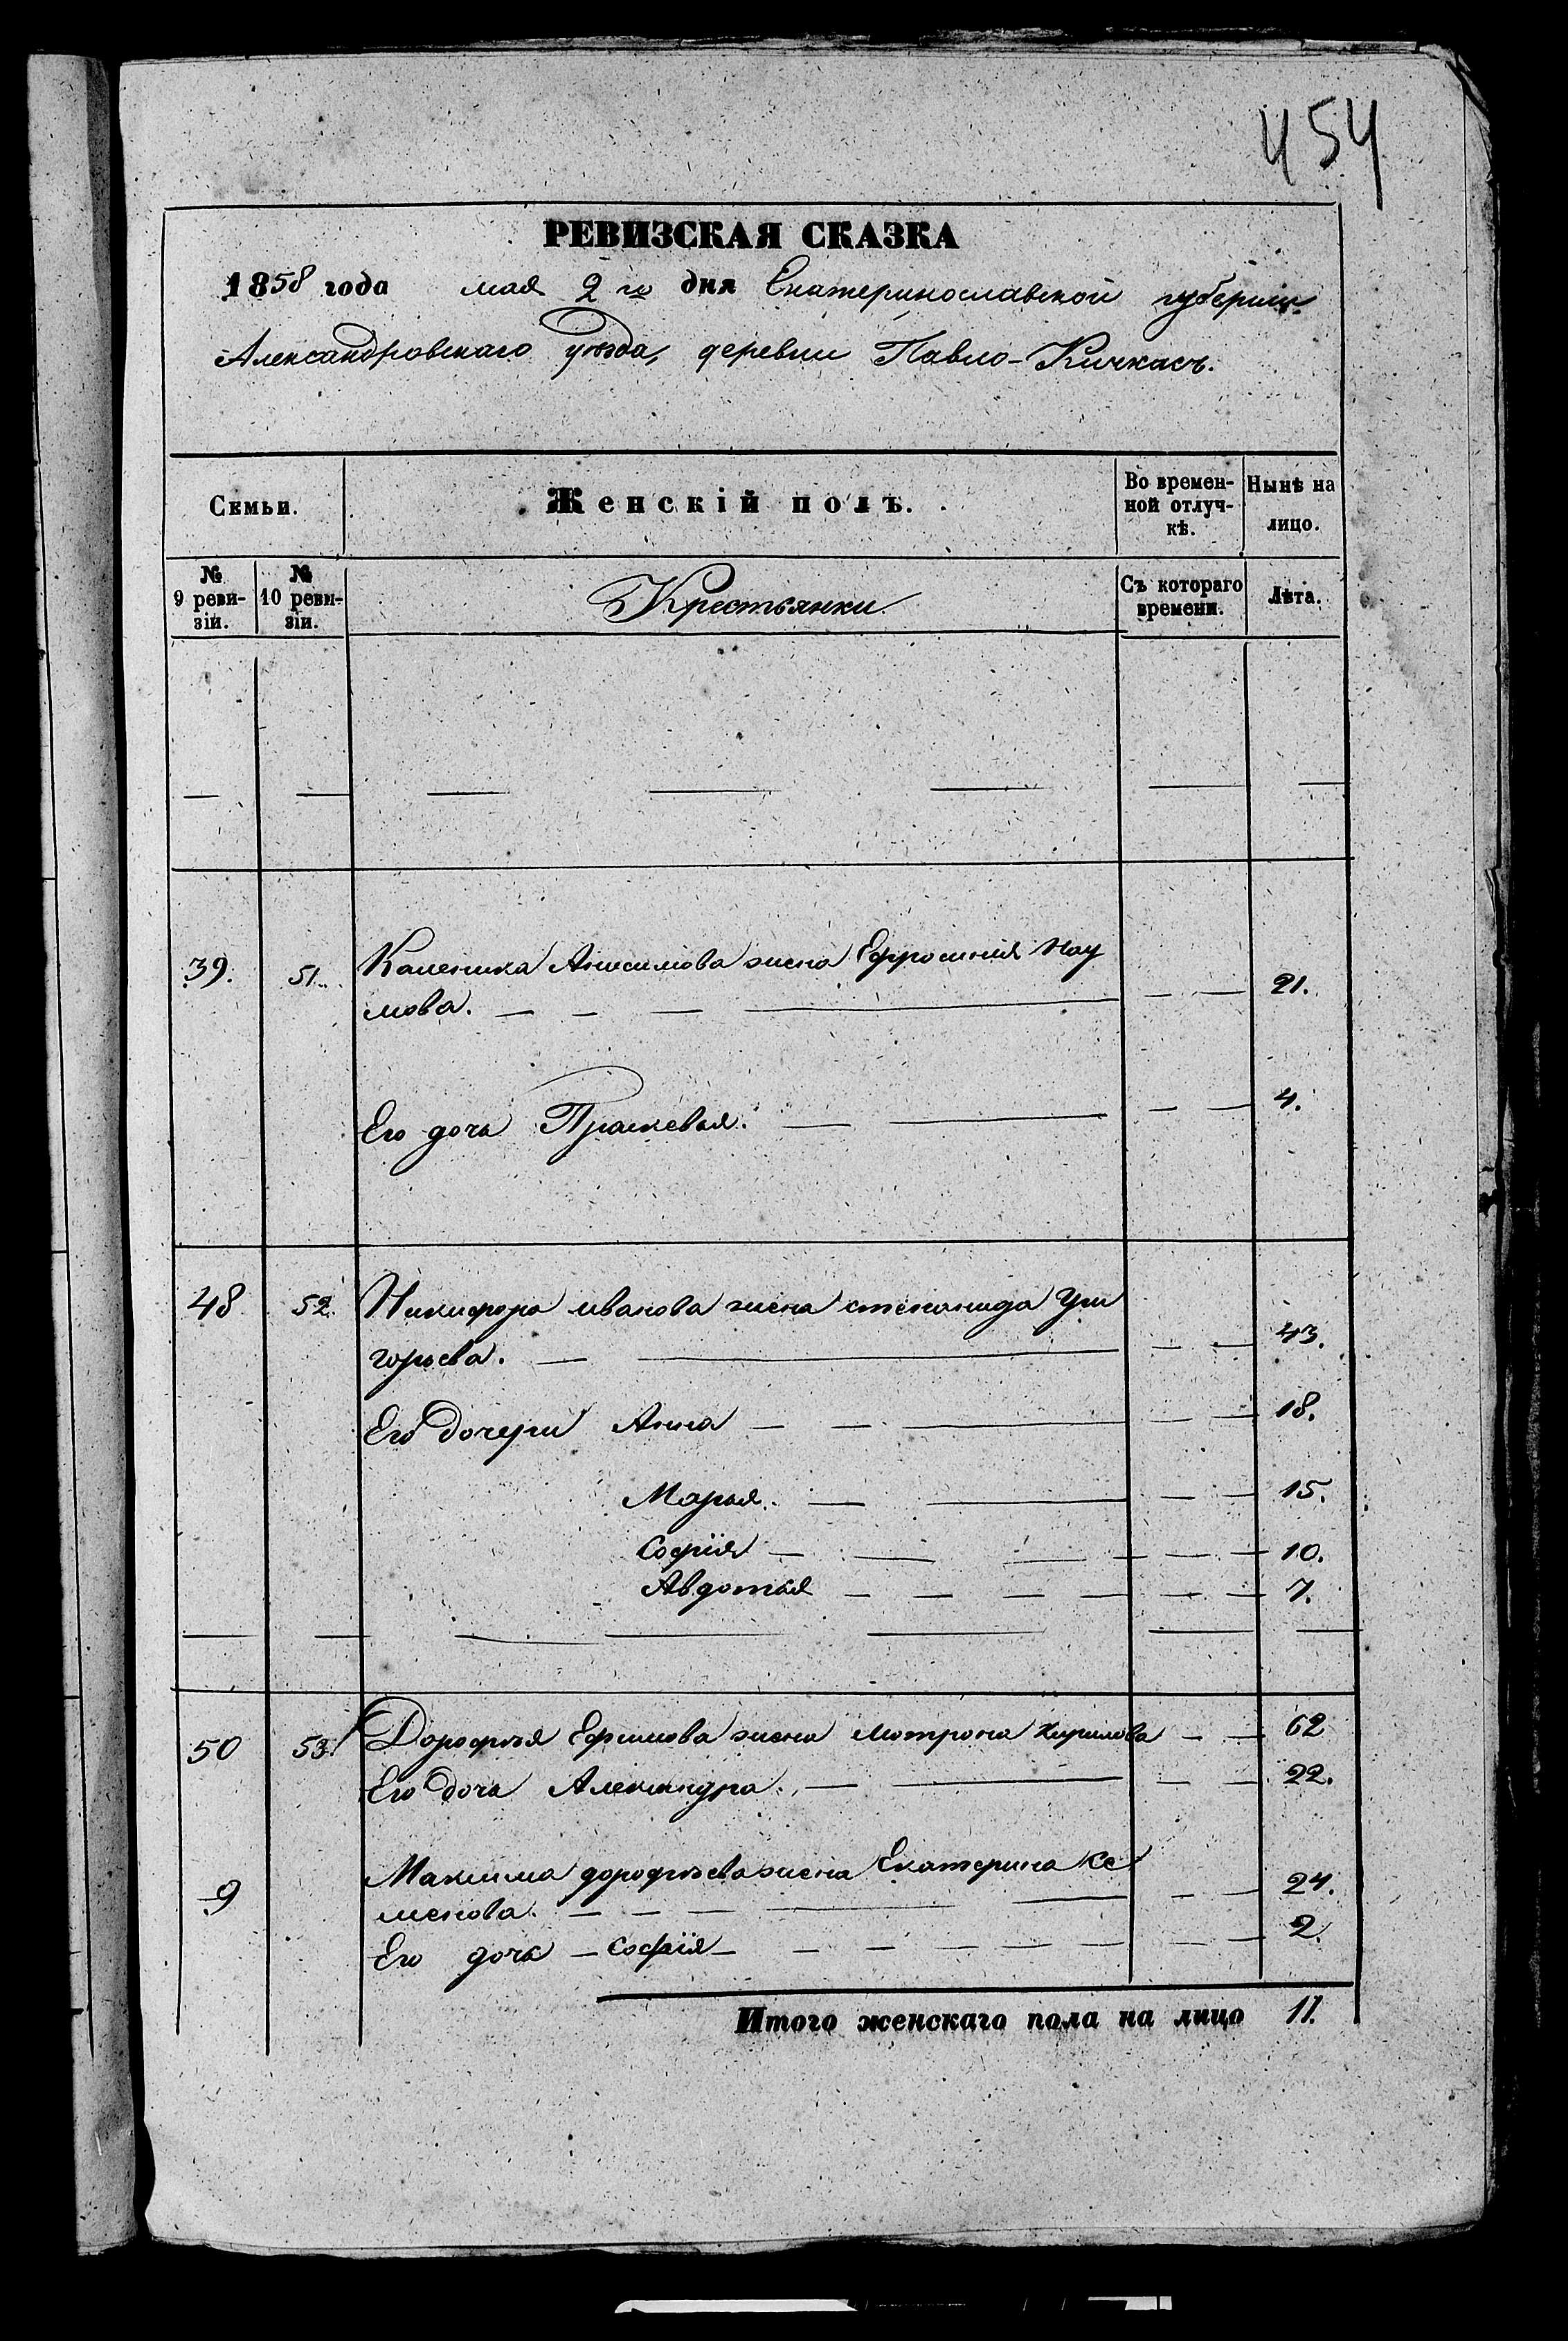 454
РЕВИЗСКАЯ СКАЗКА
1858 года мая 2го дня Екатеринославской губернии
Александровскаго уѣзда, деревни Павло-Кичкасъ.
Семьи. Женскій полъ. Во времен-ной отлуч-кѣ. Нынѣ на лицо.
№ 9 реви-зіи. № 10 реви-зіи. Крестьянки Съ котораго времени. Лѣта.
39. 51. Каленика Анисимова жена Ефросинія Нау
мова. 21.
Его дочь Прасковья. 4.
48 52. Никифора иванова жена степанида Гри
горьева. 43.
Его дочери Анна 18.
Марья. 15.
Софія 10.
Авдотья 7.
50 53. Дорофѣя Ефимова жена мотрона Кирилова 62
Его дочь Александра. 22.
Максима дорофѣева жена Екатерина Се
9 менова. 24.
Его дочь софія 2.
Итого женскаго пола на лицо 11.